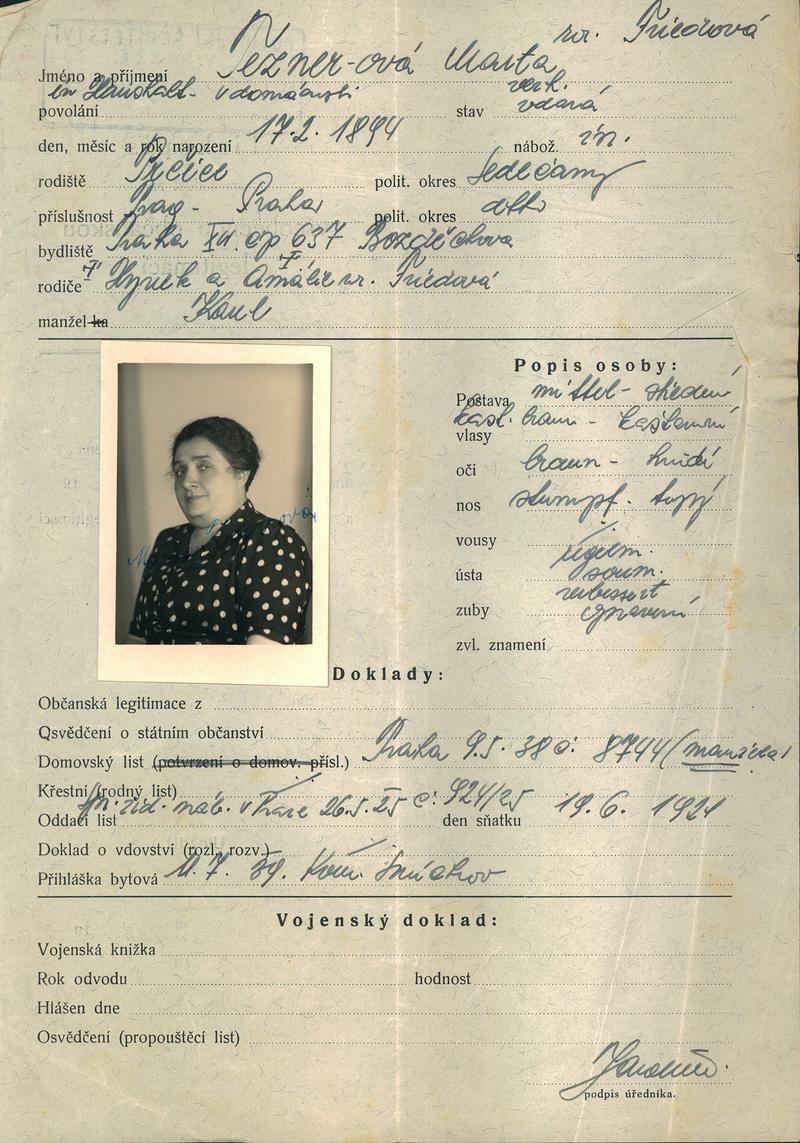 roz. Friedová
Jméno a příjmení Tezner-ová Marta
im Haushalt. v domácnosti verh.
povolání stav vdaná
den, měsíc a rok narození 17.2. 1894 nábož.
rodiště polit. okres Sedlčany
příslušnost Prag - Praha polit. okres dtto
bydliště Praha XVI. čp 637 Bozděchova
rodiče Hynek a Amálie Friedová
manžel-ka Karel
Popis osoby:
Postava mittel - střední
kast. braun - kaštanové
vlasy
oči braun - hnědé
nos stumpf. tupý
vousy
regelm.
ústa soum.
verbessert
zuby opravené
zvl. znamení
Doklady:
Občanská legitimace z
Osvědčení o státním občanství
Domovský list (potvrzení o domov. přísl.) Praha 9.5. 38 č: 8744 (manžela)
Křestní (rodný list)
žid. náb. v Praze 26.5. 25 č: 924/25
Oddací list den sňatku 19.6. 1921
Doklad o vdovství (rozl. rozv.)
Přihláška bytová 11.7. 39. Kom. Smíchov
Vojenský doklad:
Vojenská knížka
Rok odvodu hodnost
Hlášen dne
Osvědčení (propouštěcí list)
podpis úředníka.